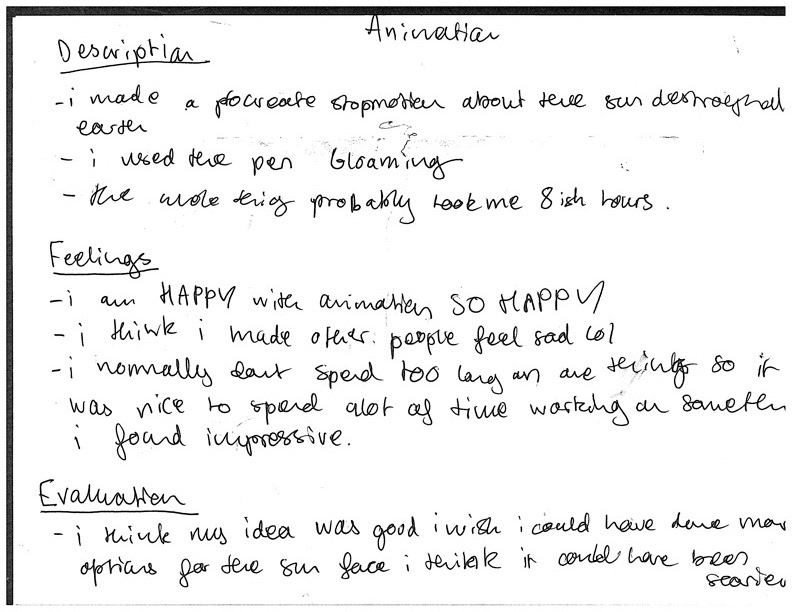 Animation
Description
- i made a procreate stopmotion about the sun destroying
earth
- i used the pen Gloaming
- the whole thing probably took me 8 ish hours.
Feelings
- i am HAPPY with animation SO HAPPY
- i think i made other people feel sad lol
- i normally dont spend too long on one thing so it
was nice to spend alot of time working on
i found impressive.
Evaluation
- i think my idea was good i wish i could have done
options for the sun face i think it could have been